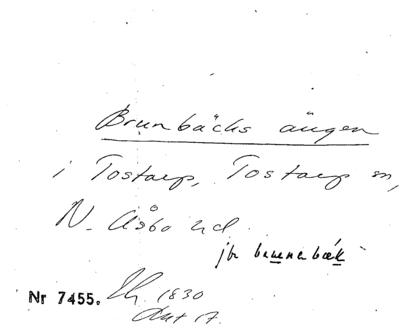 Brunbäcks ängen
i Tostarp, Tostarp sn,
N. Åsbo hd.
jfr brunnbæk
Nr 7455. Lh. 1830
Akt 17.